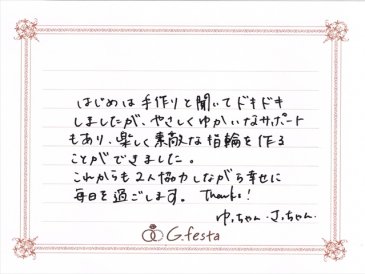 はじめは手作りと聞いてドキドキ
しましたが、やさしくゆかいなサポート
もあり、楽しく素敵な指輪を作る
ことができました。
これからも2人協力しながら幸せに
毎日を過ごします。Thanks!
ゆっちゃん・さっちゃん.
G.festa